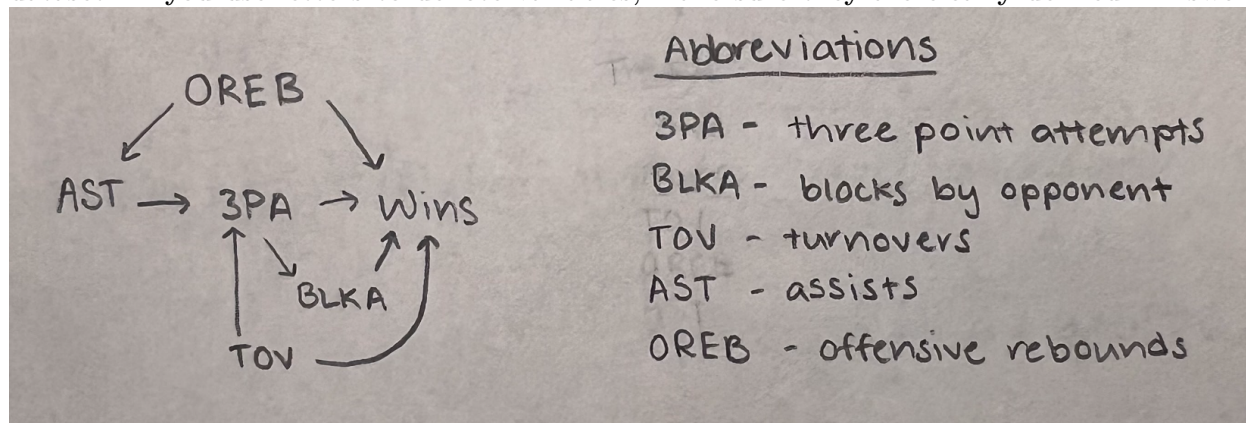 OREB
AST → 3PA → Wins
BLKA
TOV
Abbreviations
3PA - three point attempts
BLKA - blocks by opponent
TOV - turnovers
AST - assists
OREB - offensive rebounds